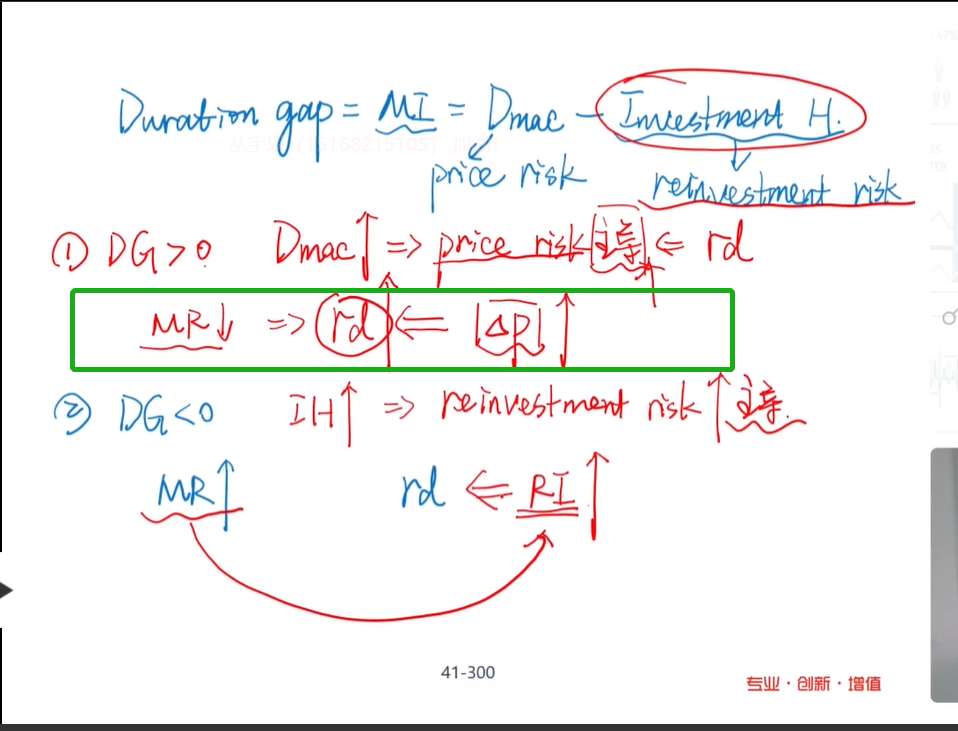 Duration gap = MI = Dmac - Investment H.
price risk
reinvestment risk
① DG>0 Dmac↑ => price risk 主导 <= rd
MR↓ => rd↑ <= |ΔP|↑
② DG<0 IH↑ => reinvestment risk↑ 主导.
MR↑ rd <= RI↑
41-300
专业·创新·增值